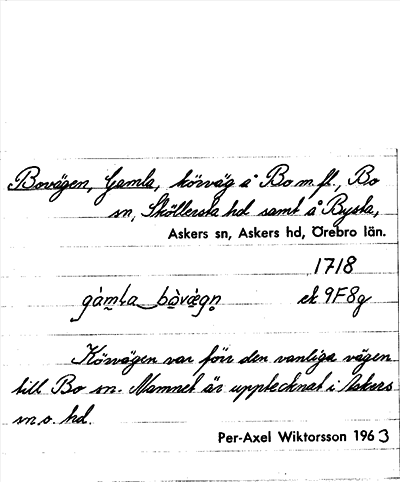 Bovägen, Gamla, körväg å Bo m. fl., Bo
sn, Sköllersta hd samt å Bysta,
Askers sn, Askers hd, Örebro län.
1718
gàmla bòvægn ek 9F8g
Körvägen var förr den vanliga vägen
till Bo sn. Namnet är upptecknat i Askers
sn o. hd.
Per-Axel Wiktorsson 1963